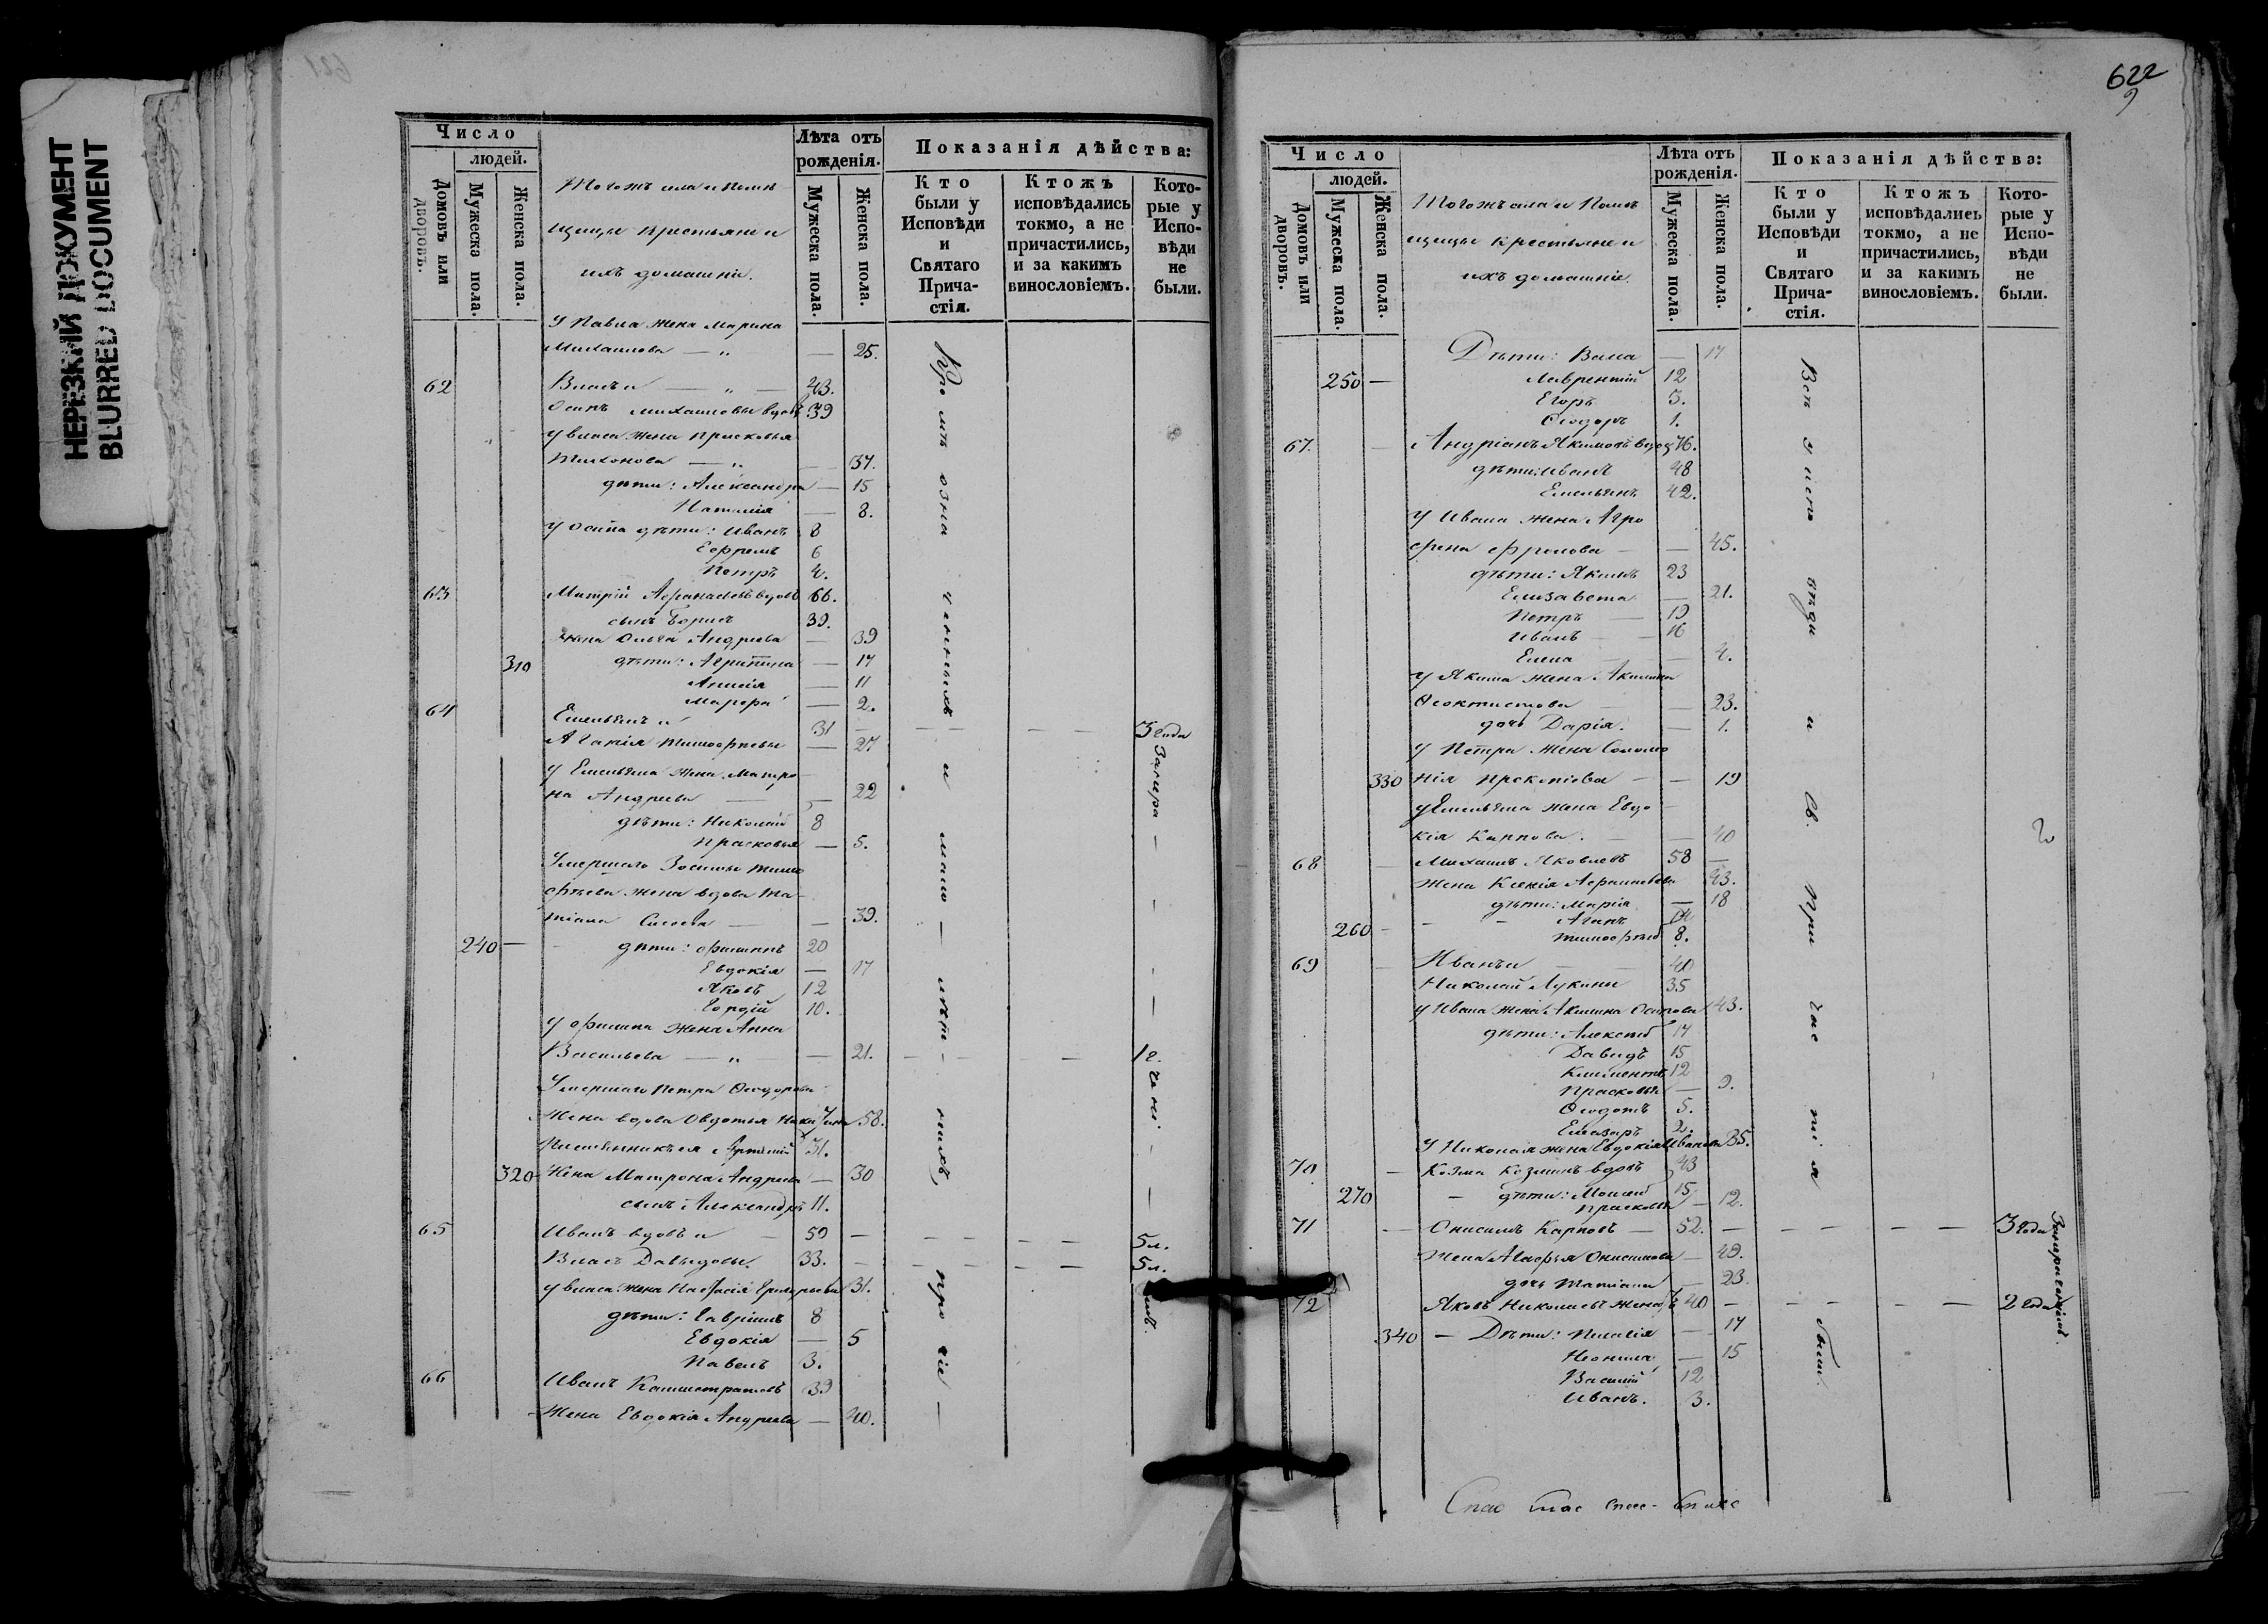 НЕРЕЗКИЙ ДОКУМЕНТ
BLURRED DOCUMENT
621
Число
людей.
Домовъ или дворовъ.
Мужеска пола.
Женска пола.
Тогожъ села и Помѣ
щицы крестьяне и
ихъ домашніе.
Лѣта отъ рожденія.
Мужеска пола.
Женска пола.
Показанія дѣйства:
Кто были у Исповѣди и Святаго Прича-стія.
Ктожъ исповѣдались токмо, а не причастились, и за какимъ винословіемъ.
Кото-рые у Испо-вѣди не были.
У Павла жена Марина
Михаилова — „ — 25.
62 Власъ и — „ — 43.
Осипъ Михаиловы вдовъ 39
у Власа жена Прасковья
Тихонова — „ — 37.
дѣти: Александра — 15
Наталія — 8.
У Осипа дѣти: Иванъ 8
Ефремъ 6
Петръ 4.
63 Митрій Афанасьевъ вдовъ 66.
сынъ Борисъ 39.
жена Ольга Андреева — 39
310 дѣти: Агрипина — 17
Анисія — 11
Марфа — 2.
64 Емельянъ и 31 — — — — — 3 года
Агапія Тимофеевы — 27
У Емельяна жена Матро
на Андреева — — 22
дѣти: Николай 8
Прасковья — 5.
Умершаго Зосимы Тимо
фѣева жена вдова Та-
тіана Сысоева — — 39.
240 — дѣти: Филиппъ 20
Евдокія — 17
Яковъ 12
Гордій 10.
У Филиппа жена Анна
Васильева — „ — 21. — — — 1 г.
Умершаго Петра Ѳеодорова
жена вдова Овдотья 58.
Племянникъ ея Артемій 31.
320 Жена Матрона Андреева — 30
сынъ Александръ 11.
65 Иванъ вдовъ и — 59 — — — — — 5 л.
Власъ Давыдовы. 33. — — — — — 5 л.
у Власа жена Настасія Григорьева 31.
дѣти: Гавріилъ 8
Евдокія — 5
Павелъ 3.
66 Иванъ Каллистратовъ 39
Жена Евдокія Андреева — 40.
Кромѣ означенныхъ и мало — лѣт — нихъ, прочіе —
622
9
Число
людей.
Домовъ или дворовъ.
Мужеска пола.
Женска пола.
Тогожъ села и Помѣ
щицы крестьяне и
ихъ домашніе.
Лѣта отъ рожденія.
Мужеска пола.
Женска пола.
Показанія дѣйства:
Кто были у Исповѣди и Святаго Прича-стія.
Ктожъ исповѣдались токмо, а не причастились, и за какимъ винословіемъ.
Кото-рые у Испо-вѣди не были.
Дѣти: — 17
250 — Лаврентій 12
Егоръ 5.
Ѳеодоръ 1.
67. — Андріанъ Якимовъ вдовъ 76.
дѣти: Иванъ 48
Емельянъ 42.
У Ивана жена Агро
фена Фролова — — 45.
дѣти: Якимъ 23
Елизавета — 21.
Петръ — 19
Иванъ — 16
Елена — 4.
У Якима жена Акилина
Ѳеоктистова — — 23.
дочь Дарія. — 1.
У Петра жена Соломо
330 нія Прокопіева — — 19
У Емельяна жена Евдо
кія Карпова. — — 40
68 — Михаилъ Яковлевъ 58 —
жена Ксенія 43.
дѣти: Марія — 18
260 — Агапъ 14
Тимофѣй 8.
69 — Иванъ и — 40
Николай Лукины 35
У Ивана жена Акилина Осипова 43.
дѣти: Алексѣй 17
Давидъ 15
Климентъ 12
Прасковья — 9.
Ѳеодотъ 5.
Елизаръ 2.
У Николая жена Евдокія Иванова 35.
70 — Козма Козминъ вдовъ 43
270 — дѣти: Моисей 15
Прасковья — 12.
71 — Онисимъ Карповъ — 52. — — — — — 3 года
Жена Агафья Онисимова — 49.
дочь Татіана — 23.
72 Яковъ Николаевъ 40 — — — — — 2 года
340 — Дѣти: Пелагія — 17
Неонила — 15
Василій 12
Иванъ. 3.
Всѣ у исповѣди и Св. Причастія были.